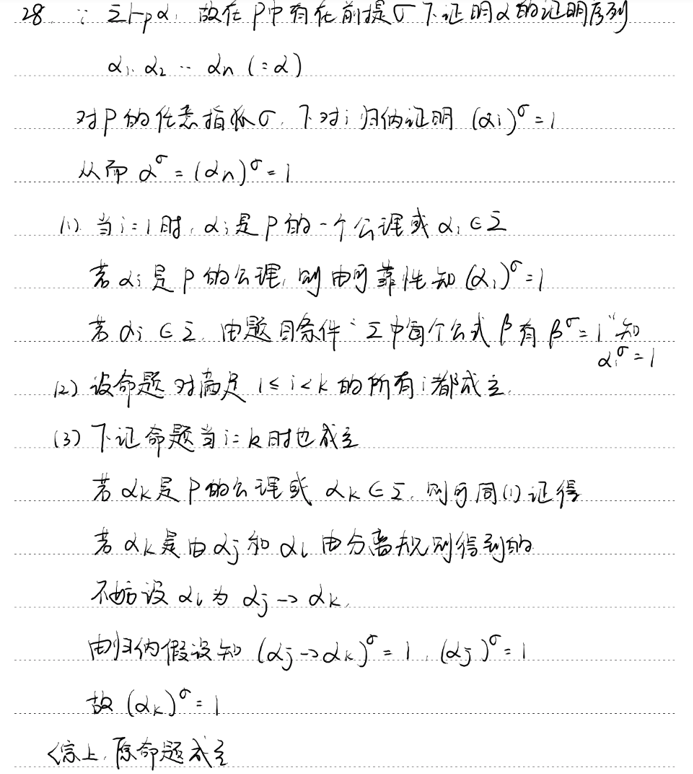 28. ∵ Σ⊢ₚα, 故在P中有在前提σ下证明α的证明序列
α₁, α₂ ⋯ αn (=α)
对P的任意指派σ, 下对i归纳证明 (αi)^σ = 1
从而 α^σ = (αn)^σ = 1
(1) 当i=1时, αi是P的一个公理或 α₁∈Σ
若αi是P的公理, 则由可靠性知 (α₁)^σ = 1
若αi∈Σ, 由题目条件“Σ中每个公式β有 β^σ = 1”知
αi^σ = 1
(2) 设命题对满足 1≤i<k 的所有i都成立.
(3) 下证命题当i=k时也成立
若αk是P的公理或 αk∈Σ, 则可同(1)证得
若αk是由αj和αl由分离规则得到的
不妨设αl为 αj→αk,
由归纳假设知 (αj→αk)^σ = 1, (αj)^σ = 1
故 (αk)^σ = 1
综上, 原命题成立